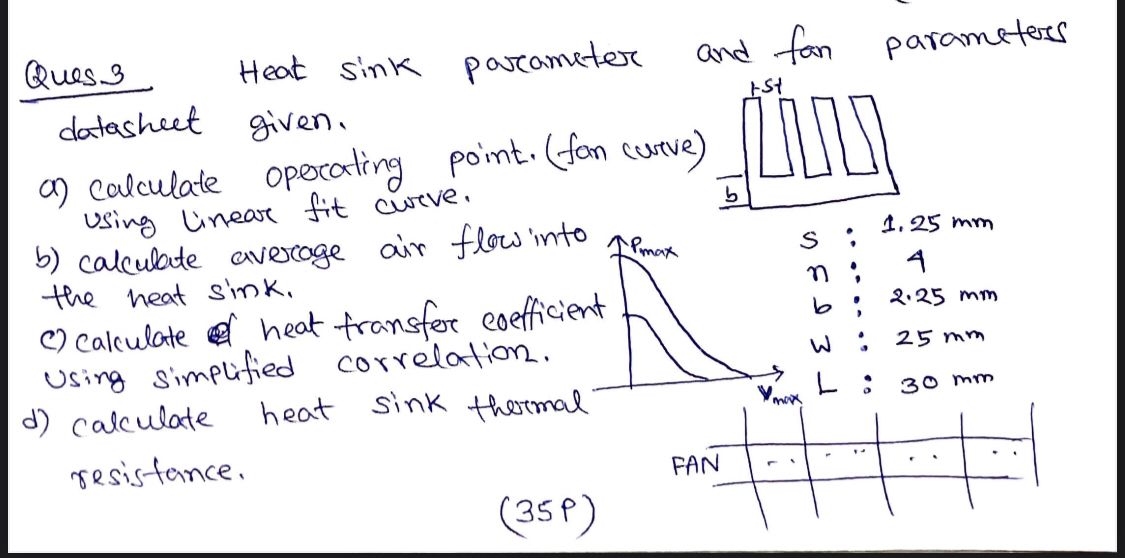 Ques.3 Heat sink parameter and fan parameters
datasheet given.
a) calculate operating point. (fan curve)
using linear fit curve.
b) calculate average air flow into
the heat sink.
c) calculate heat transfer coefficient
using simplified correlation.
d) calculate heat sink thermal
resistance.
(35P)
St
b
s : 1.25 mm
n : 4
b : 2.25 mm
w : 25 mm
L : 30 mm
Pmax
Vmax
FAN